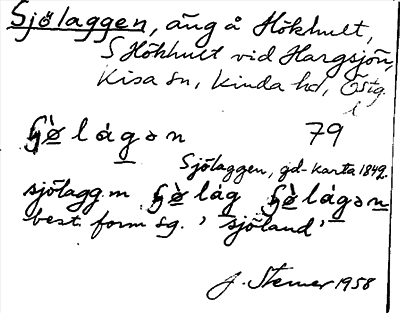 Sjölaggen, äng å Hökhult,
S Hökhult vid Hargsjön,
Kisa sn, Kinda hd, Östg.
ɧø̀lágən 79
Sjölaggen, gd-karta 1849.
sjölagg.m ɧø̀lág ɧø̀lágən
best. form sg. 'sjöland'
J. Sterner 1958